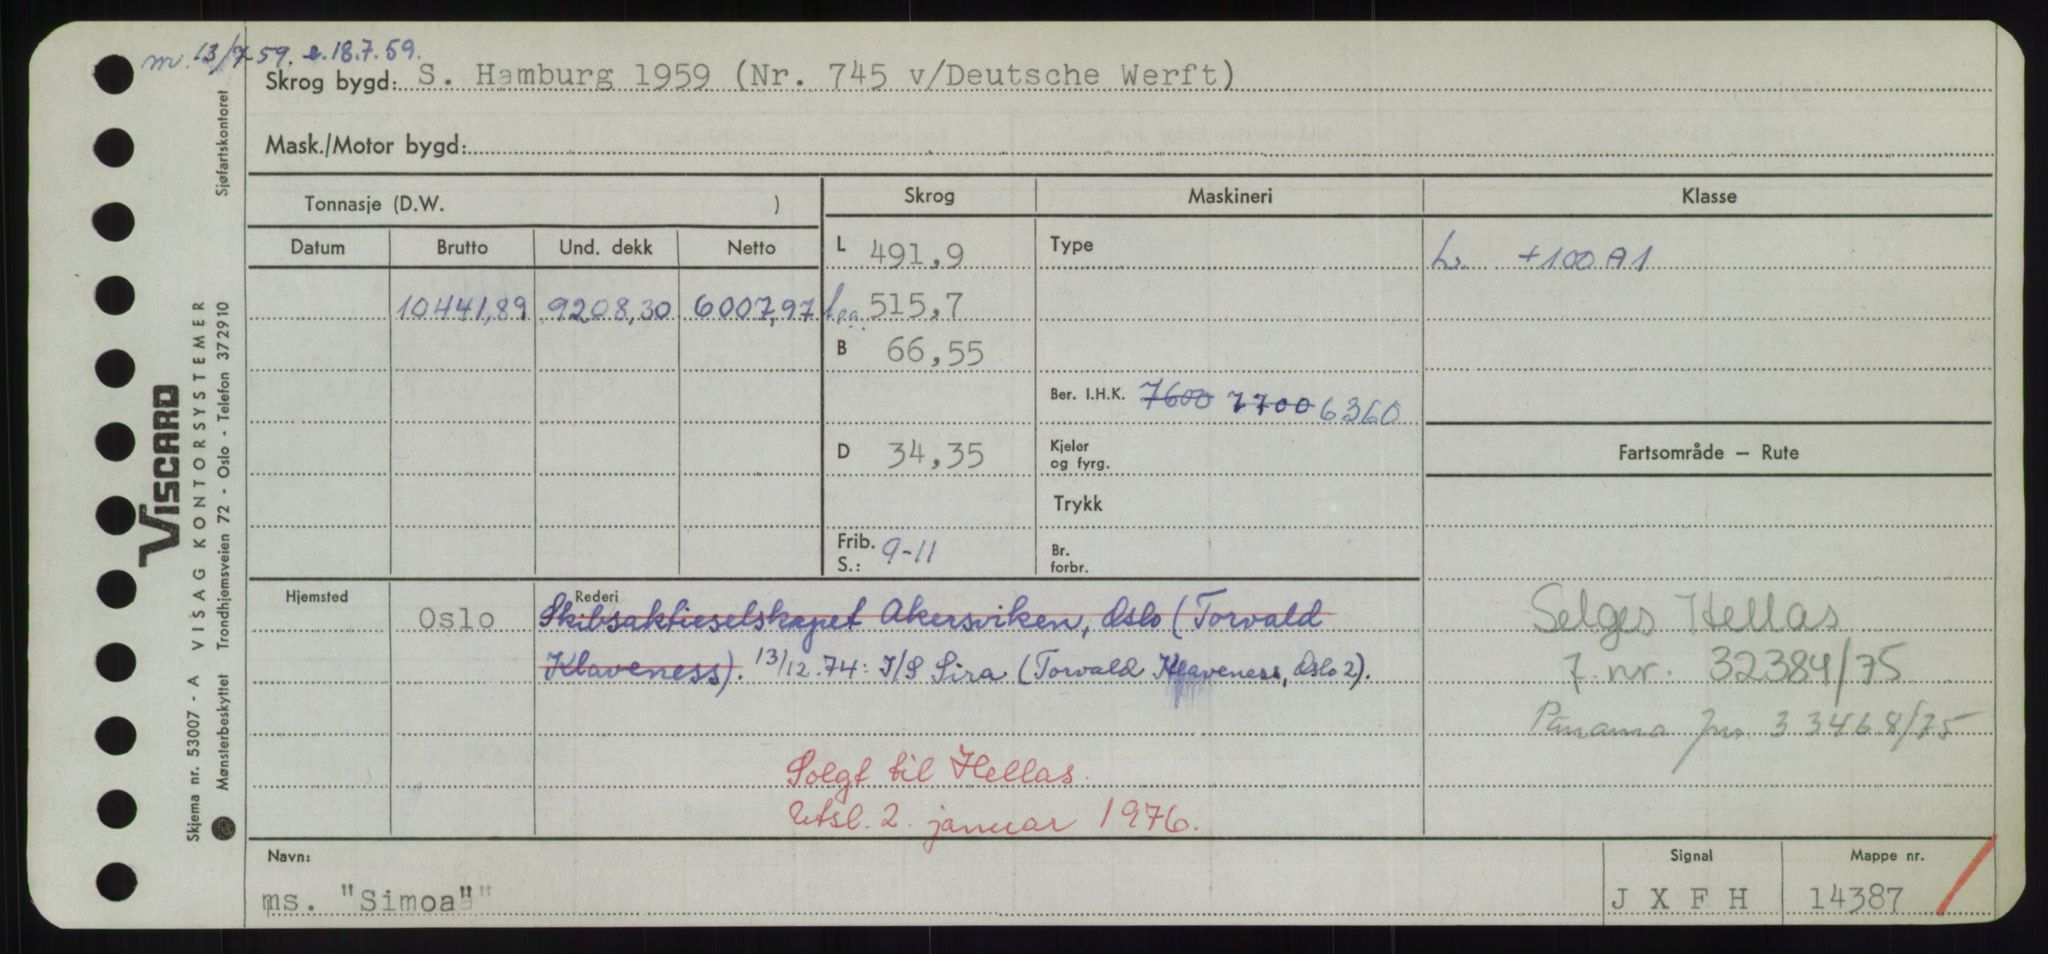 m. 13/7-59. e. 18.7.59.
Skrog bygd: S. Hamburg 1959 (Nr. 745 v/Deutsche Werft)
Mask./Motor bygd:
Tonnasje (D.W. )
Skrog
Maskineri
Klasse
Datum
Brutto
Und. dekk
Netto
L 491,9
Type
Lr. +100 A1
10441,89 9208,30 6007,97
l.o.a. 515,7
B 66,55
Ber. I.H.K. 7600 7700 6360
D 34,35
Kjeler
og fyrg.
Fartsområde – Rute
Trykk
Frib.
S.: 9-11
Br.
forbr.
Hjemsted
Oslo
Rederi
Skibsaktieselskapet Akersviken, Oslo (Torvald
Klaveness). 13/12.74: I/S Sira (Torvald Klaveness, Oslo 2).
Selges Hellas
J. nr. 32384/75
Panama jnr. 33468/75
Solgt til Hellas.
Utsl. 2. januar 1976.
Navn:
ms. "Simoa"
Signal
J X F H
Mappe nr.
14387
VISCARD
VISAG KONTORSYSTEMER
Skjema nr. 53007 - A
Mønsterbeskyttet Trondhjemsveien 72 - Oslo - Telefon 372910
Sjøfartskontoret